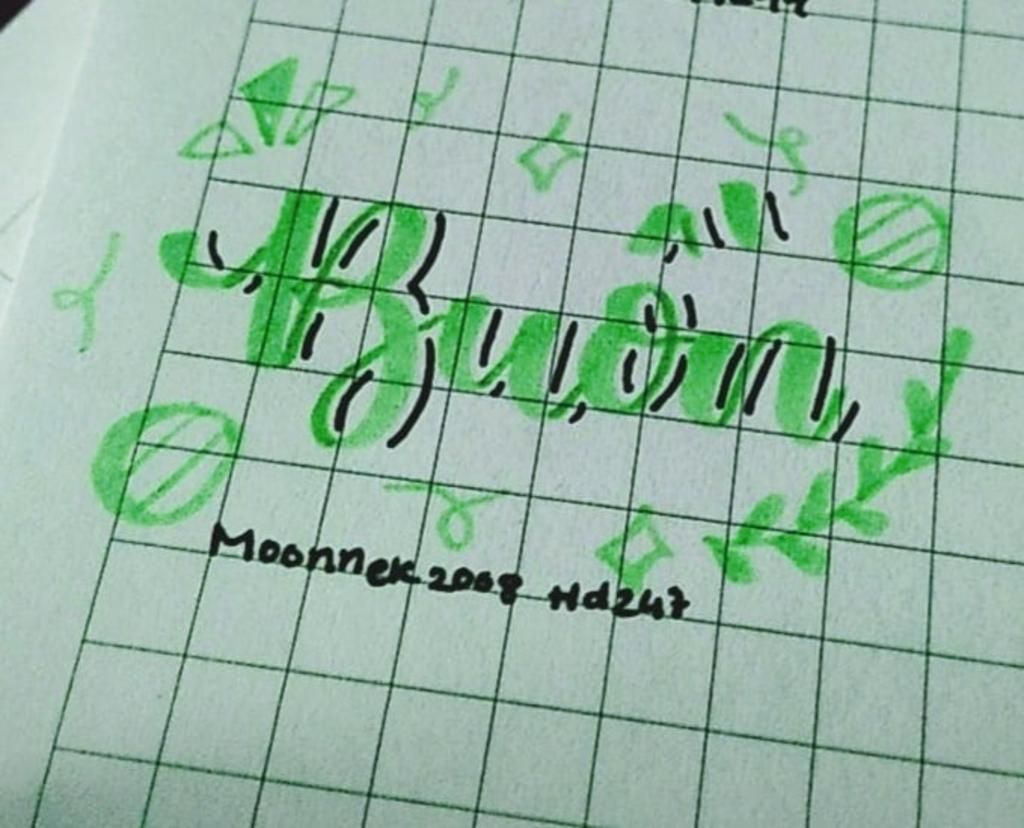 Buồn
Moonnek2008 Hd247